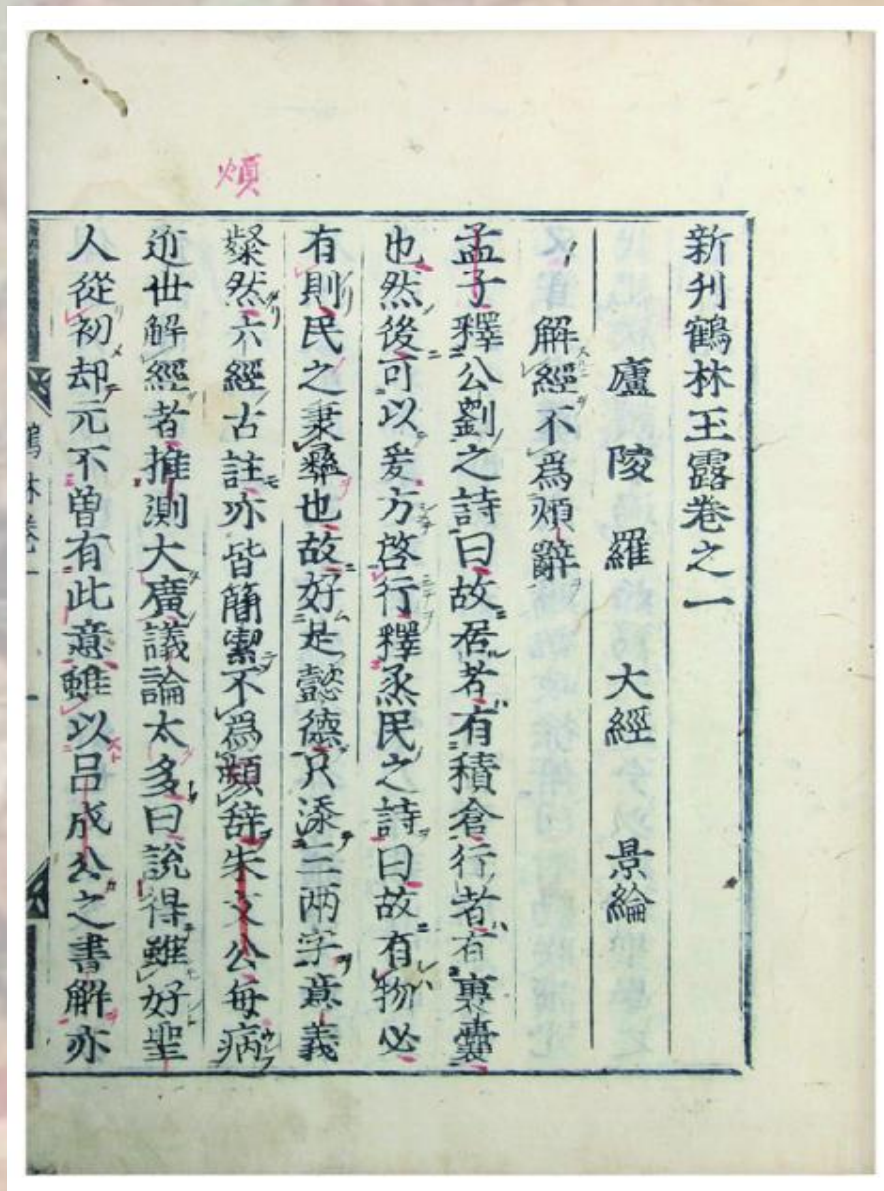 新刊鶴林玉露卷之一
廬陵羅大經景綸
解經不爲煩辭
孟子釋公劉之詩曰故居者有積倉行者有裹囊
也然後可以爰方啓行釋烝民之詩曰故有物必
有則民之秉彝也故好是懿德只添三两字意義
粲然六經古註亦皆簡潔不爲頻辞朱文公每病
近世解經者推測大廣議論太多曰說得雖好聖
人從初却元不曾有此意雖以吕成公之書解亦
煩
鶴林卷一